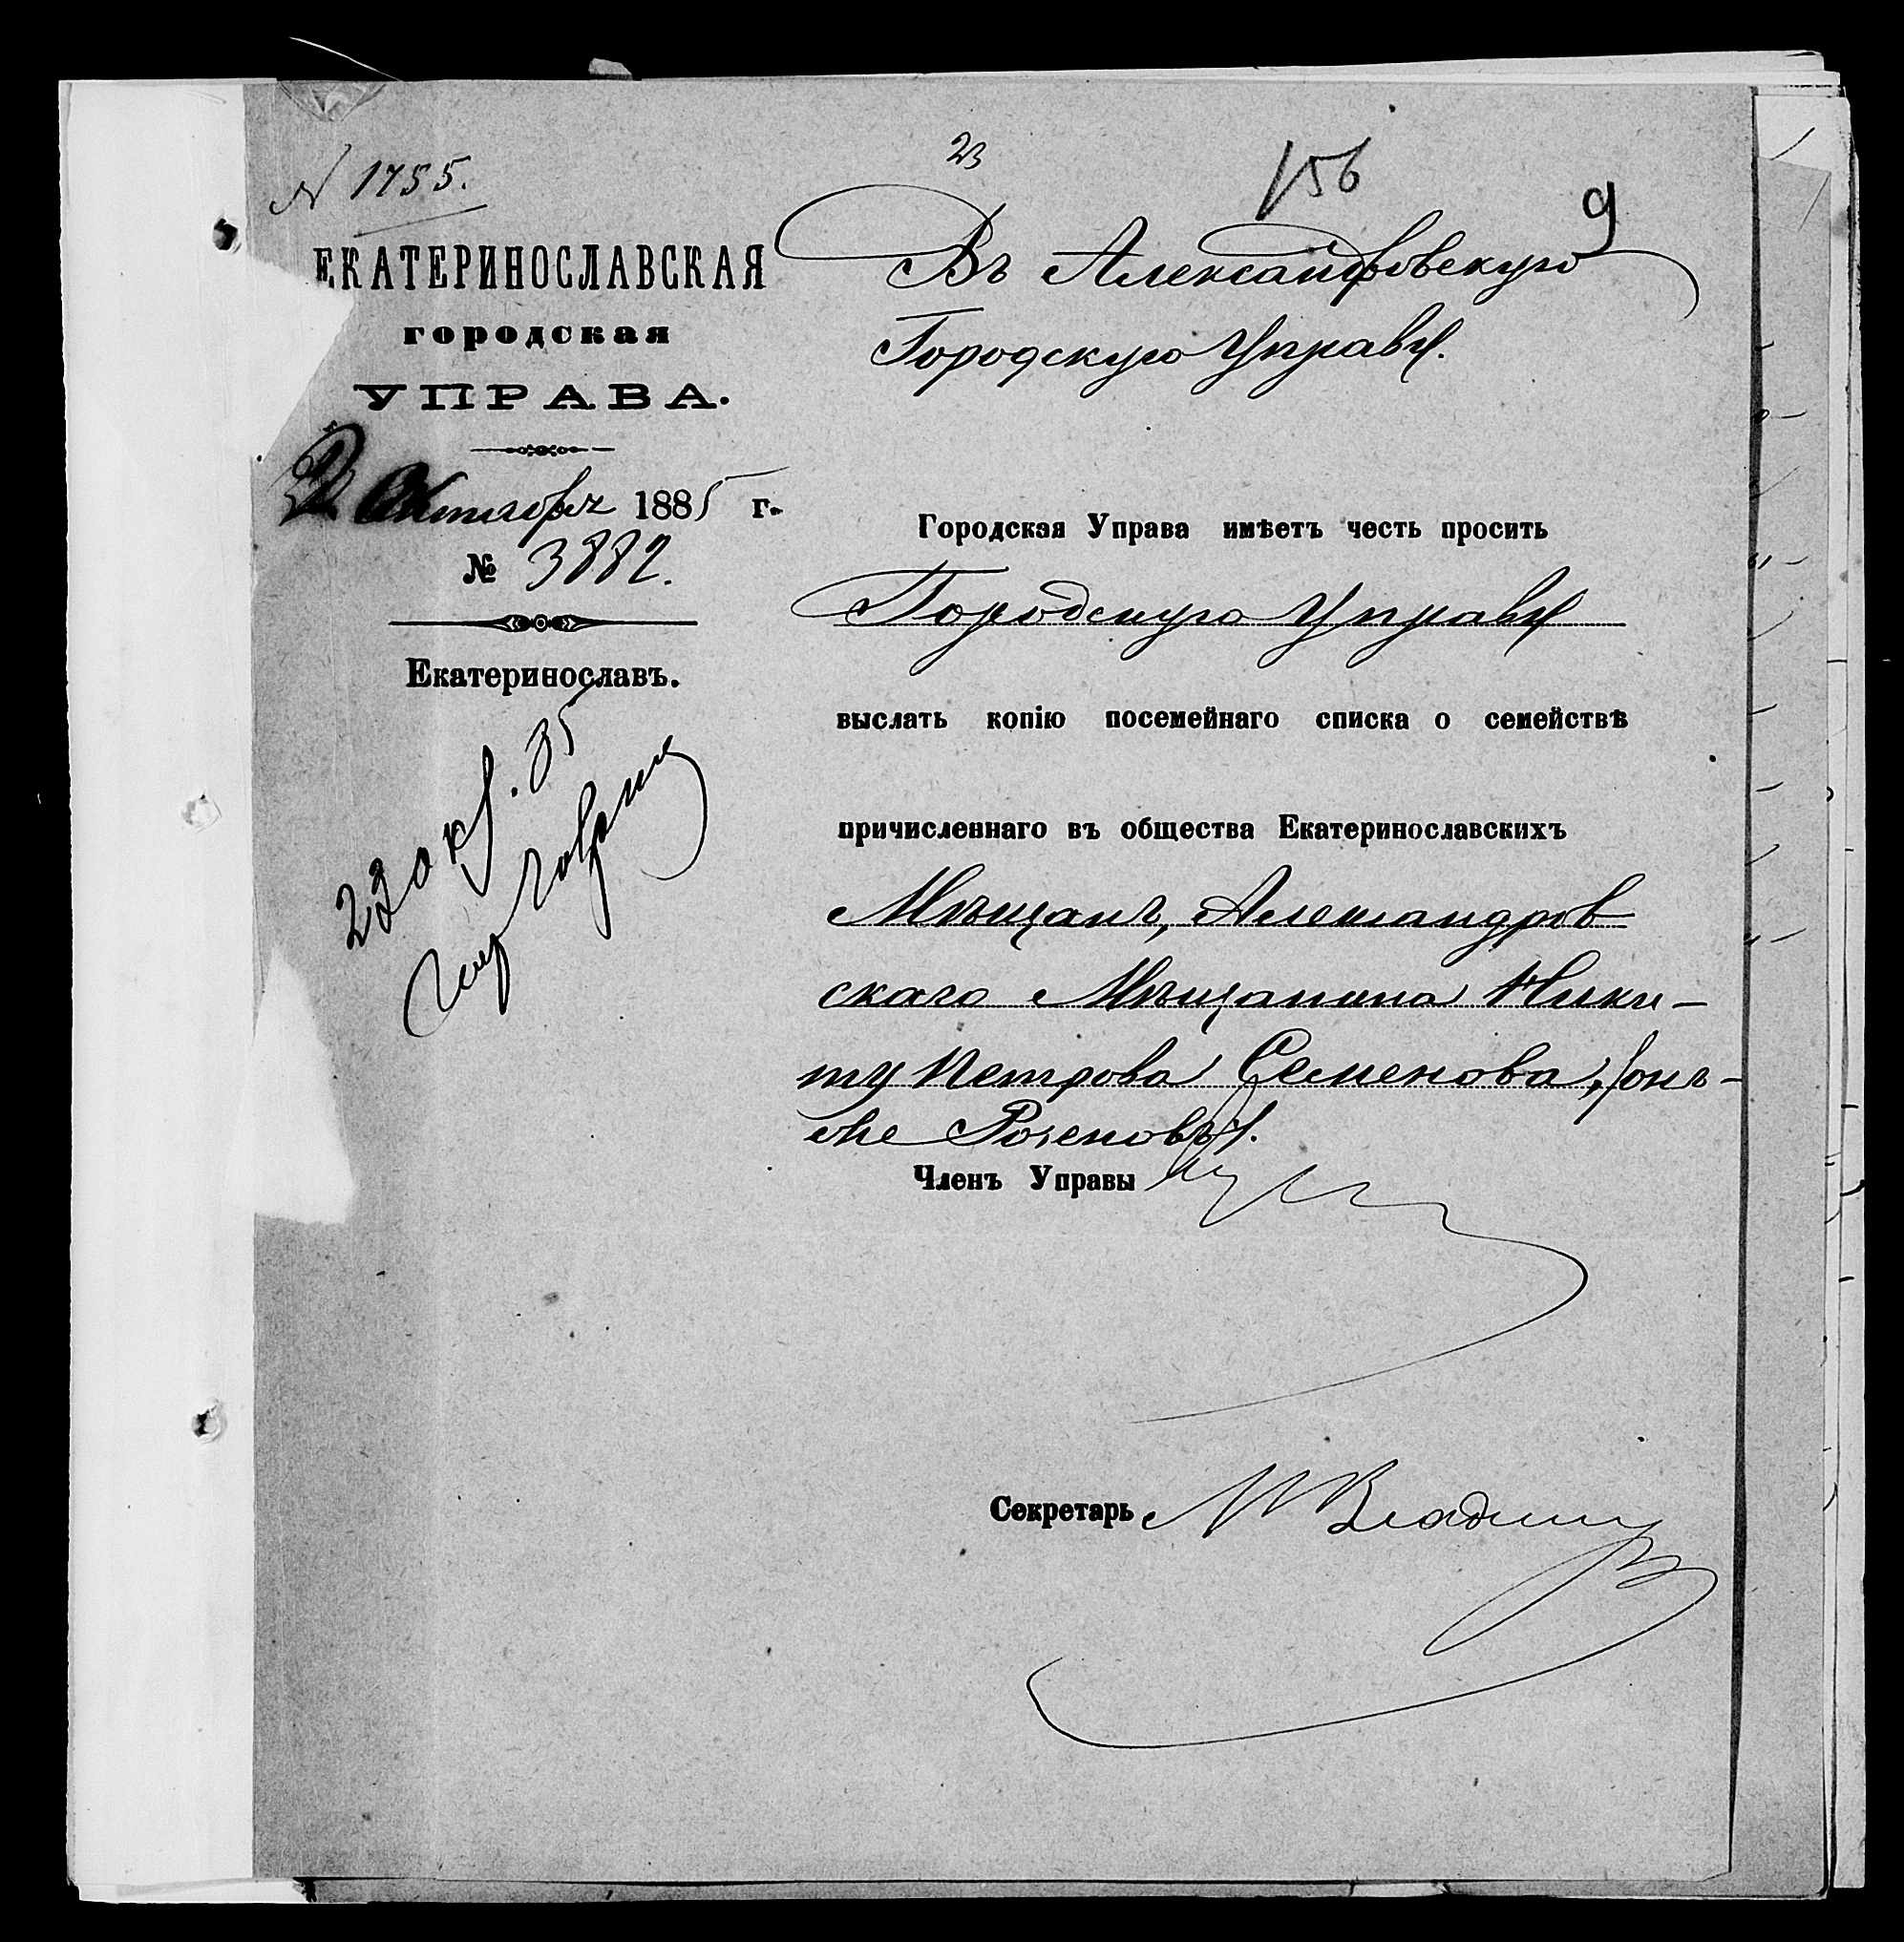 N 1755.
23
156
9
ЕКАТЕРИНОСЛАВСКАЯ
городская
УПРАВА.
Октября 1885 г.
№ 3882.
Екатеринославъ.
22 окт. 85
Въ Александровскую
Городскую Управу.
Городская Управа имѣетъ честь просить
Городскую Управу
выслать копію посемейнаго списка о семействѣ
причисленнаго въ общества Екатеринославскихъ
Мѣщанъ, Александров
скаго Мѣщанина Ники-
ту Петрова Семенова, онъ-
же
Членъ Управы
Секретарь